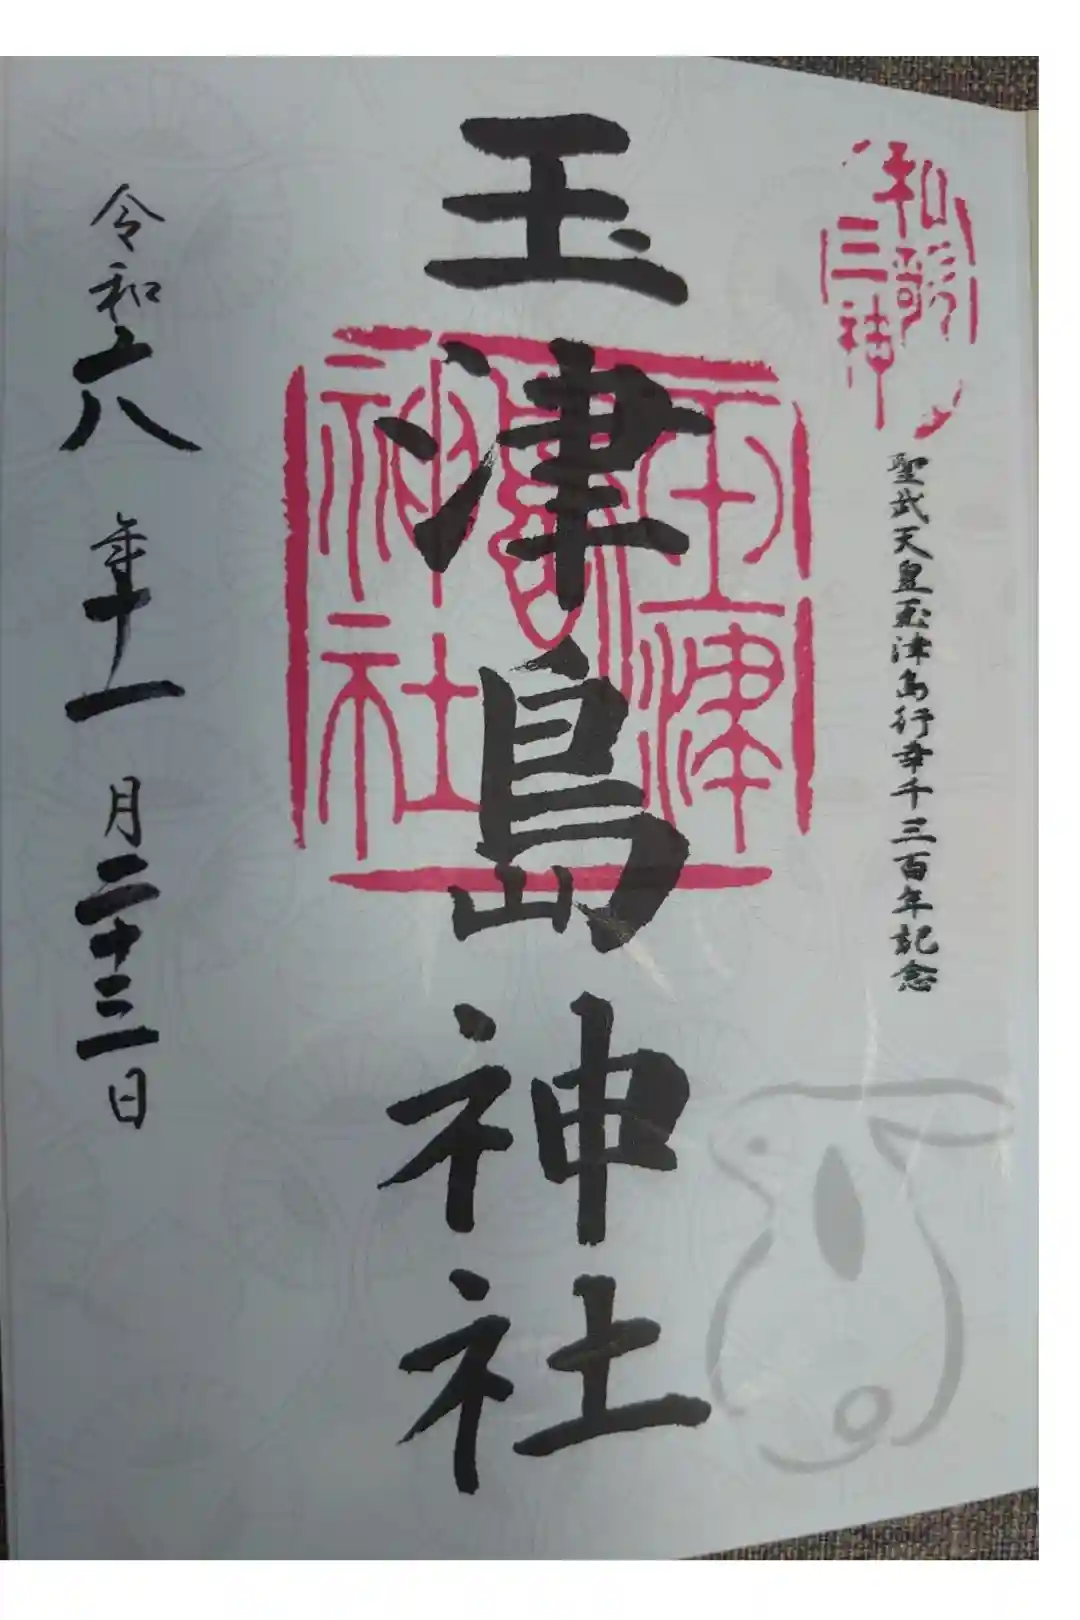 和歌
三神
聖武天皇玉津島行幸千三百年記念
玉津島神社
玉津
島
神社
令和六年十一月二十三日